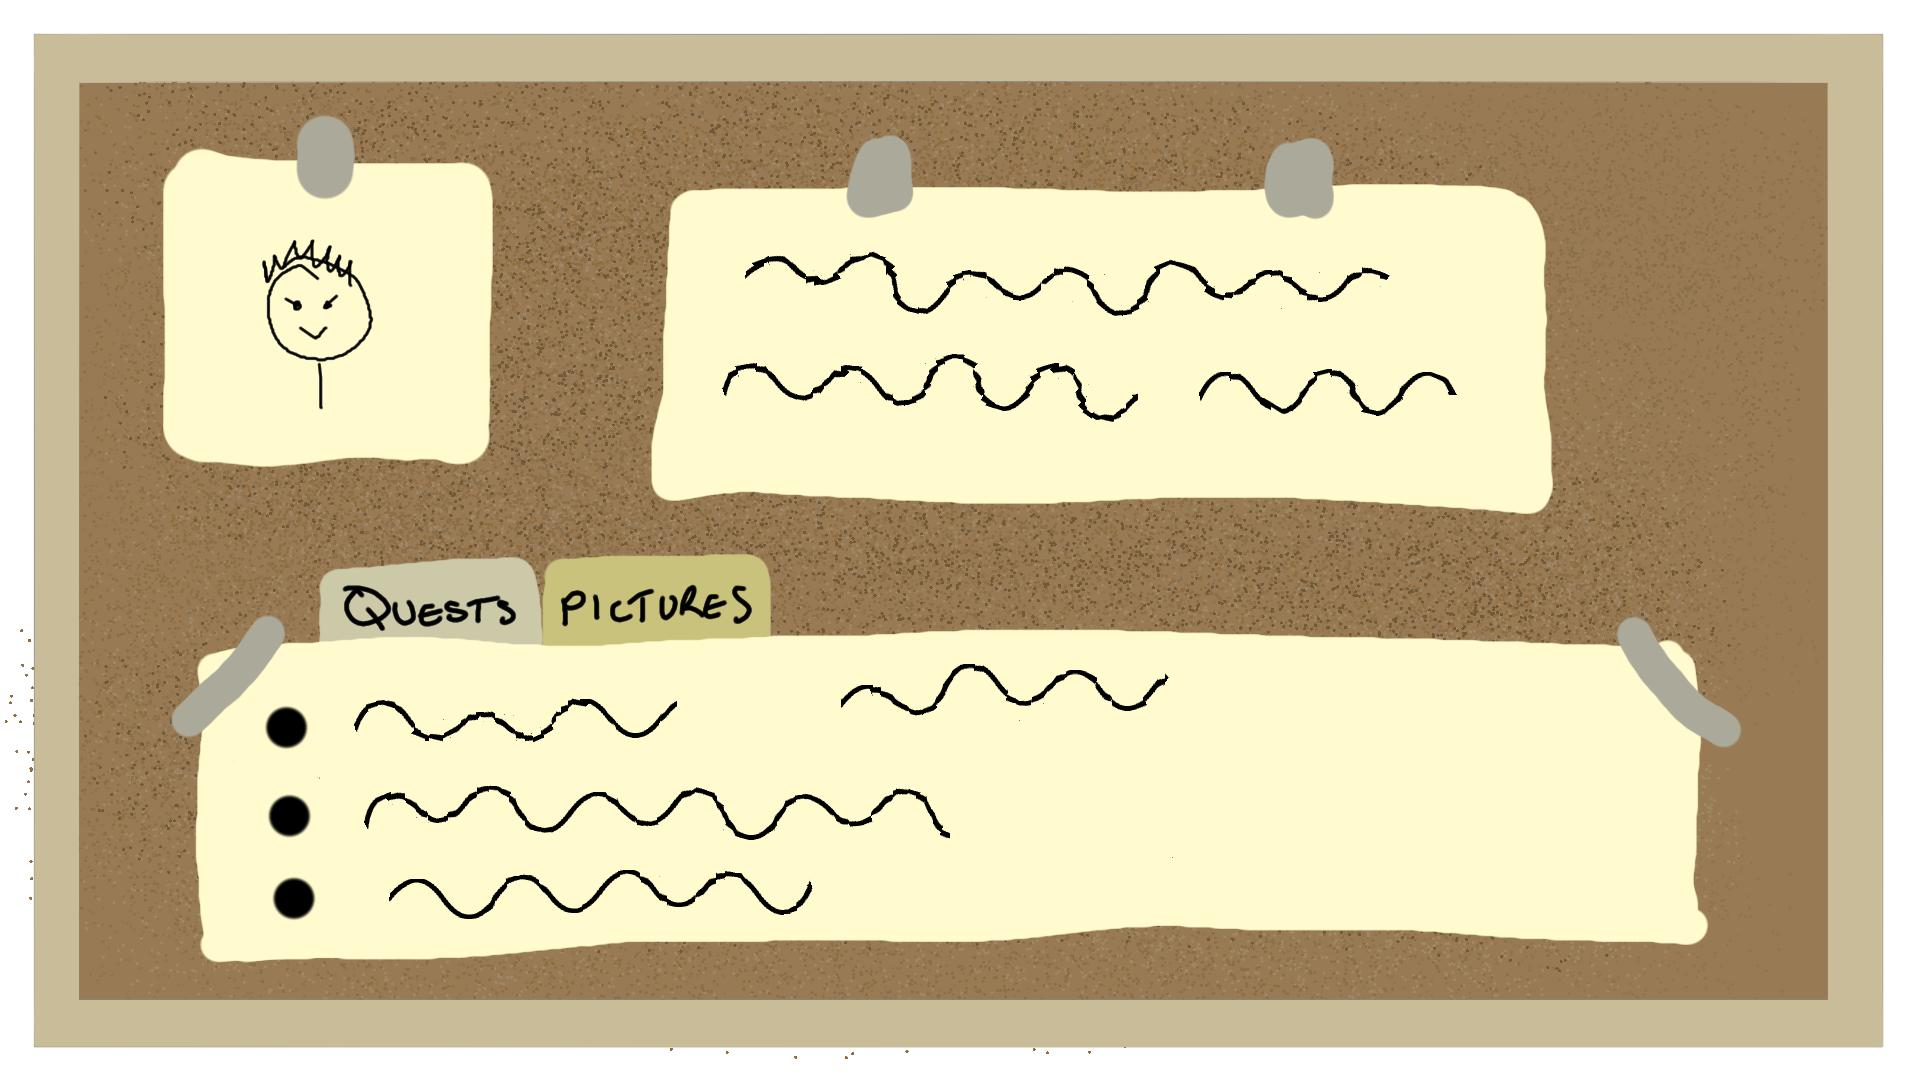 QUESTS PICTURES